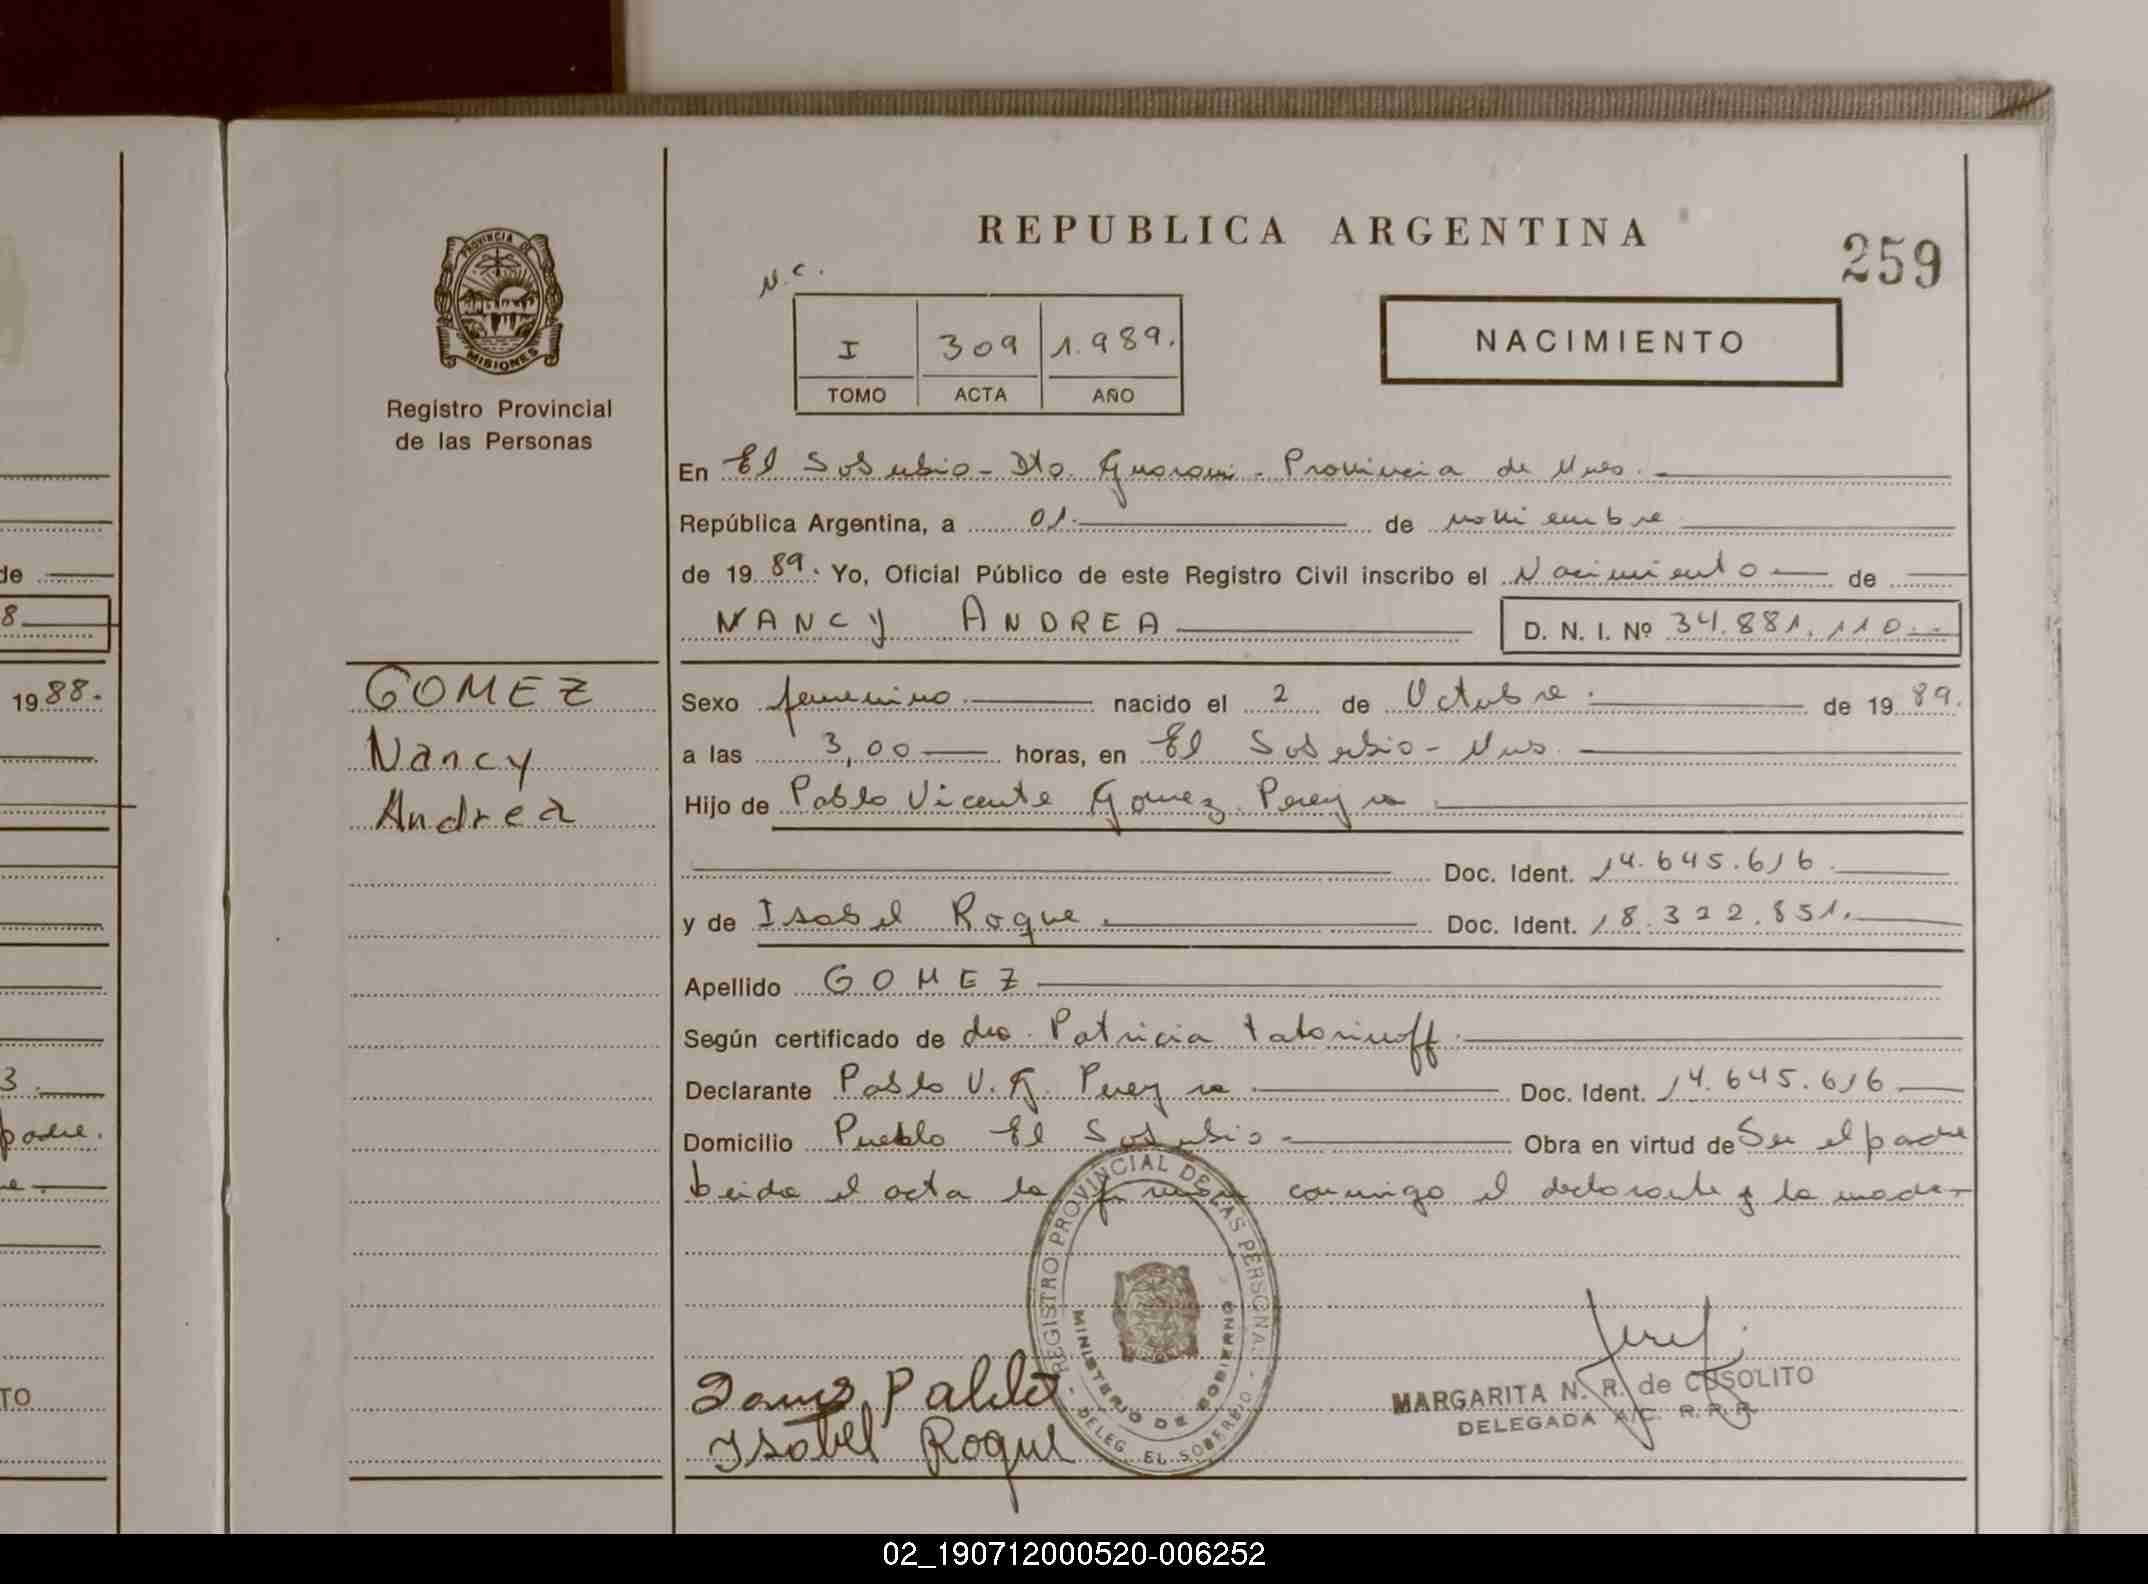 REPUBLICA ARGENTINA
259
N.C.
PROVINCIA DE
MISIONES
Registro Provincial
de las Personas
I 309 1.989.
TOMO ACTA AÑO
NACIMIENTO
En El Soberbio - Dto. Guarani - Provincia de Mnes.
República Argentina, a 01 de noviembre
de 1989. Yo, Oficial Público de este Registro Civil inscribo el Nacimiento de
NANCY ANDREA D. N. I. Nº 34.881.110
GOMEZ
Nancy
Andrea
Sexo femenino nacido el 2 de Octubre de 1989.
a las 3,00 horas, en El Soberbio - Mnes.
Hijo de Pablo Vicente Gomez Pereyra
Doc. Ident. 14.645.616
y de Isabel Roque Doc. Ident. 18.322.851.
Apellido GOMEZ
Según certificado de dra. Patricia Tatarinoff
Declarante Pablo V. G. Pereyra Doc. Ident. 14.645.616
Domicilio Pueblo El Soberbio Obra en virtud de Ser el padre
Leida el acta la firman conmigo el declarante y la madre
REGISTRO PROVINCIAL DE LAS PERSONAS - DELEG. EL SOBERBIO -
MINISTERIO DE GOBIERNO
Pablo
Isabel Roque
MARGARITA N. R. de CUSOLITO
DELEGADA A/C. R.P.P.
de
8
1988.
3
padre.
TO
02_190712000520-006252